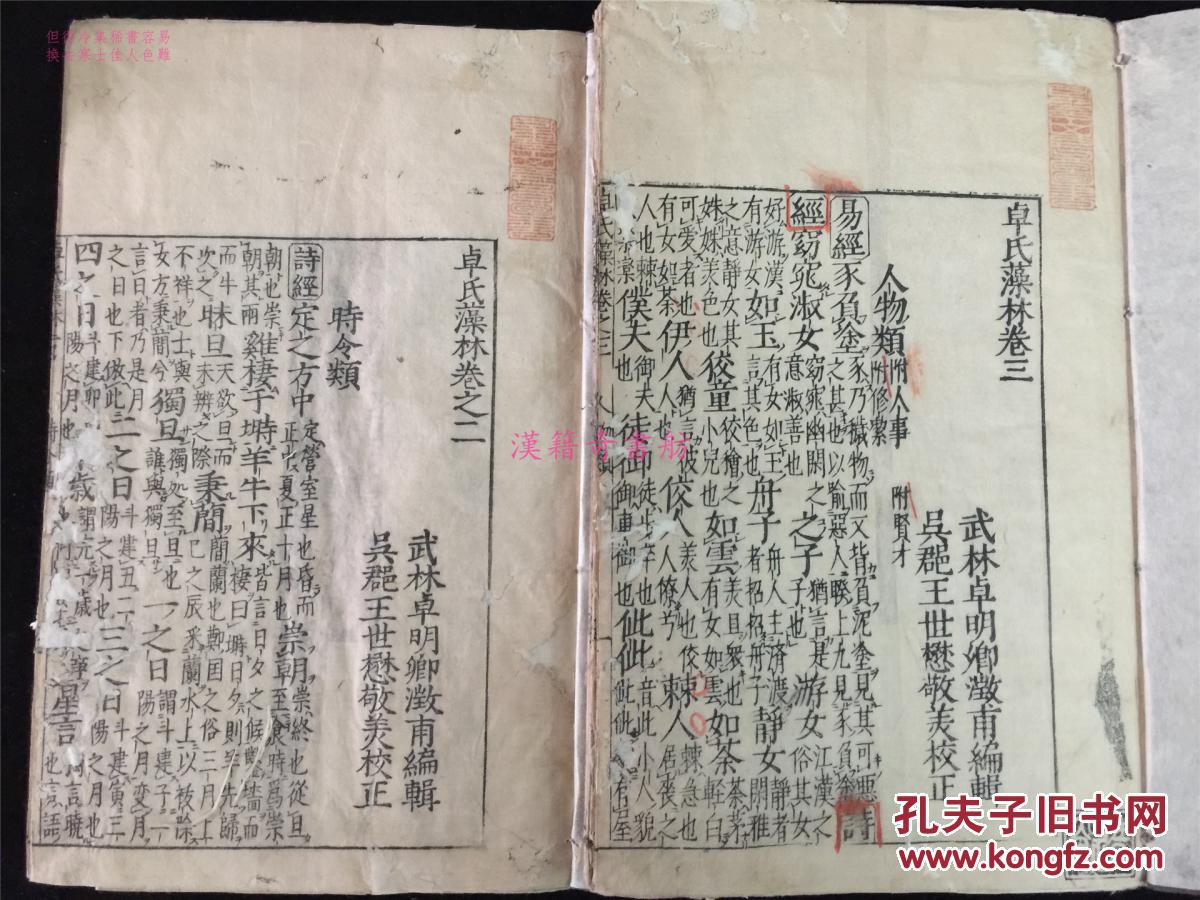 但得冷集稀書容易
換去寒士佳人色難
卓氏藻林卷三
武林卓明卿澂甫編輯
吳郡王世懋敬美校正
人物類 附人事 附修累 附賢才
易經 豕負塗 豕乃穢物而又背負泥塗見其可惡
之甚也以喻惡人睽上九見豕負塗 詩
經 窈窕淑女 窈窕幽閑之意淑善也 之子 猶言是子也 游女 江漢之俗其女
好游漢有游女 如玉 有女如玉言其 舟子 舟人主濟渡者招招舟子 靜女 靜者閒雅
之意靜女其姝姝美色也 狡童 狡獪之小兒也 如雲 美且衆也有女如雲 如荼 荼茅輕白
可愛者也有女如荼 伊人 猶言彼人也 佼人 美人也佼人僚兮 棘人 棘急也居喪之
人也棘人 僕夫 御夫也 徒御 徒步卒也御車御也 佌佌 音此小人貌佌佌 有屋
卓氏藻林卷之二
武林卓明卿澂甫編輯
吳郡王世懋敬美校正
時令類
詩經 定之方中 定營室星也昏而正中夏正十月也 崇朝 崇終也從旦至食時爲崇
朝也崇朝其雨 雞棲于塒羊牛下來 皆言日夕之候鑿墻而棲曰塒日夕則羊先歸
而牛次之 昧旦 天欲旦而未辨之際 秉蕑 蕑蘭也鄭國之俗三月上巳之辰采蘭水上以祓除
不祥也士與女方秉蕑兮 獨旦 獨處至旦也誰與獨旦 一之日 謂斗建子一陽之月變月
言日者乃是月之日也下做此 二之日 斗建丑二陽之月也 三之日 斗建寅三陽之月也
四之日 斗建卯四陽之月也 歲 星言 言曉 也言語
漢籍奇書舫
孔夫子旧书网
www.kongfz.com